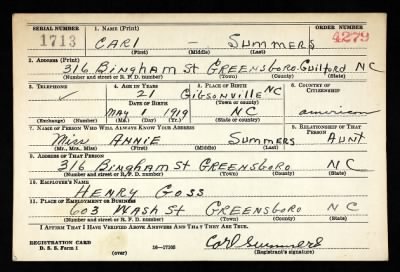 SERIAL NUMBER 1. NAME (Print) ORDER NUMBER
1713 CARL — SUMMERS 4279
(First) (Middle) (Last)
2. ADDRESS (Print)
316 BINGHAM St GREENSBORO Guilford NC
(Number and street or R. F. D. number) (Town) (County) (State)
3. TELEPHONE 4. AGE IN YEARS 5. PLACE OF BIRTH 6. COUNTRY OF CITIZENSHIP
✓ 21 GIBSONVILLE NC
DATE OF BIRTH (Town or county)
MAY 1 1919 NC american
(Exchange) (Number) (Mo.) (Day) (Yr.) (State or country)
7. NAME OF PERSON WHO WILL ALWAYS KNOW YOUR ADDRESS 8. RELATIONSHIP OF THAT PERSON
MISS ANNIE SUMMERS AUNT
(Mr., Mrs., Miss) (First) (Middle) (Last)
9. ADDRESS OF THAT PERSON
316 BINGHAM St GREENSBORO NC
(Number and street or R. F. D. number) (Town) (County) (State)
10. EMPLOYER'S NAME
HENRY GOSS
11. PLACE OF EMPLOYMENT OR BUSINESS
603 WASH St GREENSBORO NC
(Number and street or R. F. D. number) (Town) (County) (State)
I AFFIRM THAT I HAVE VERIFIED ABOVE ANSWERS AND THAT THEY ARE TRUE.
REGISTRATION CARD Carl Summers
D. S. S. Form 1 (over) 16—17105 (Registrant's signature)